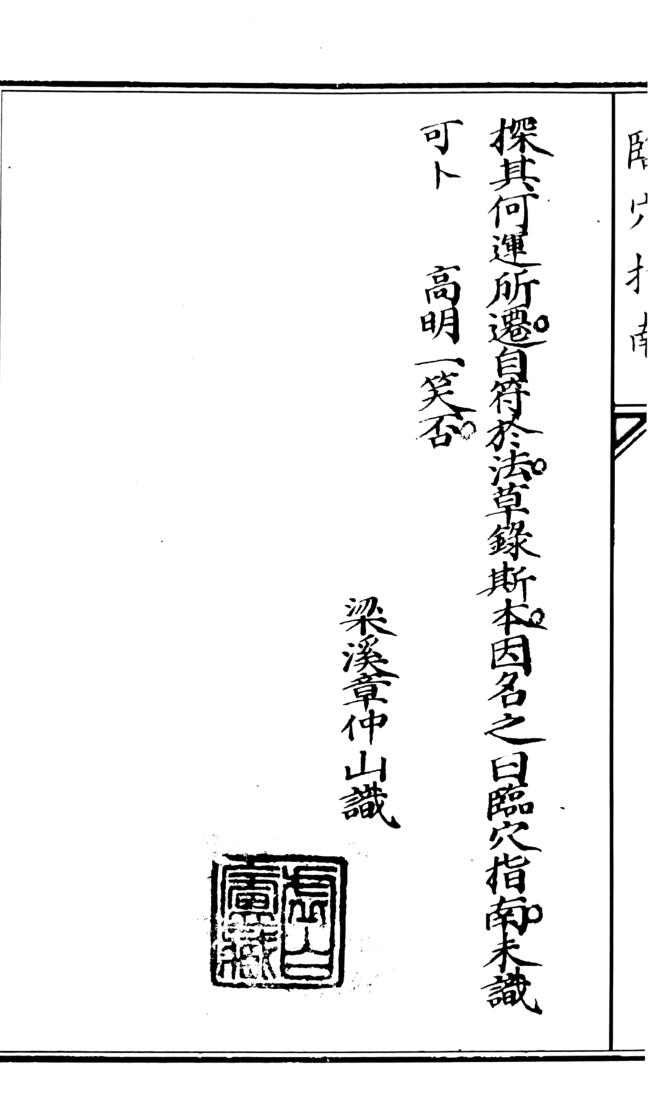 臨穴指南
探其何運所遷。自符於法。草錄斯本。因名之曰臨穴指南。未識
可卜　高明一笑否。
梁溪章仲山識